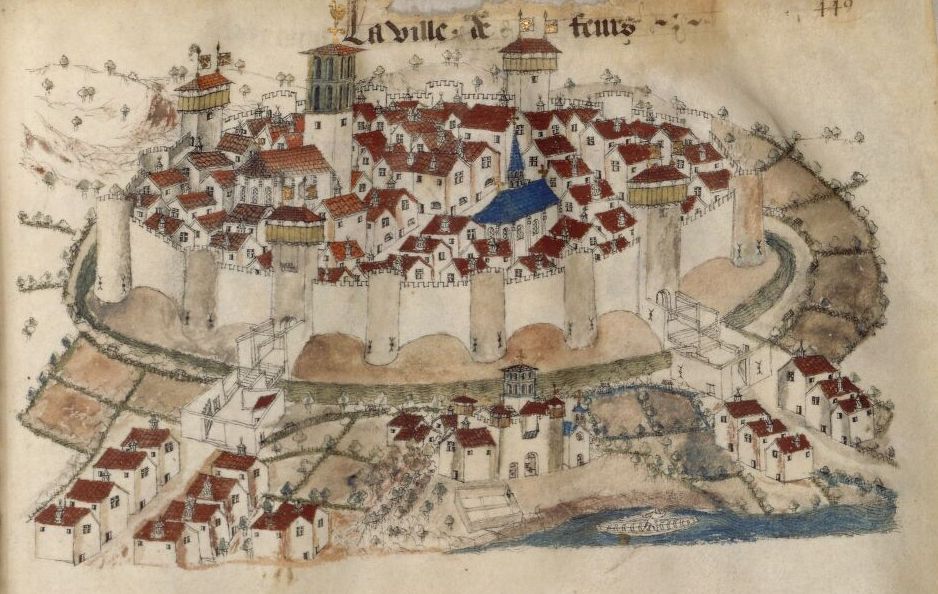 La ville · de feurs · ~ · ~
449